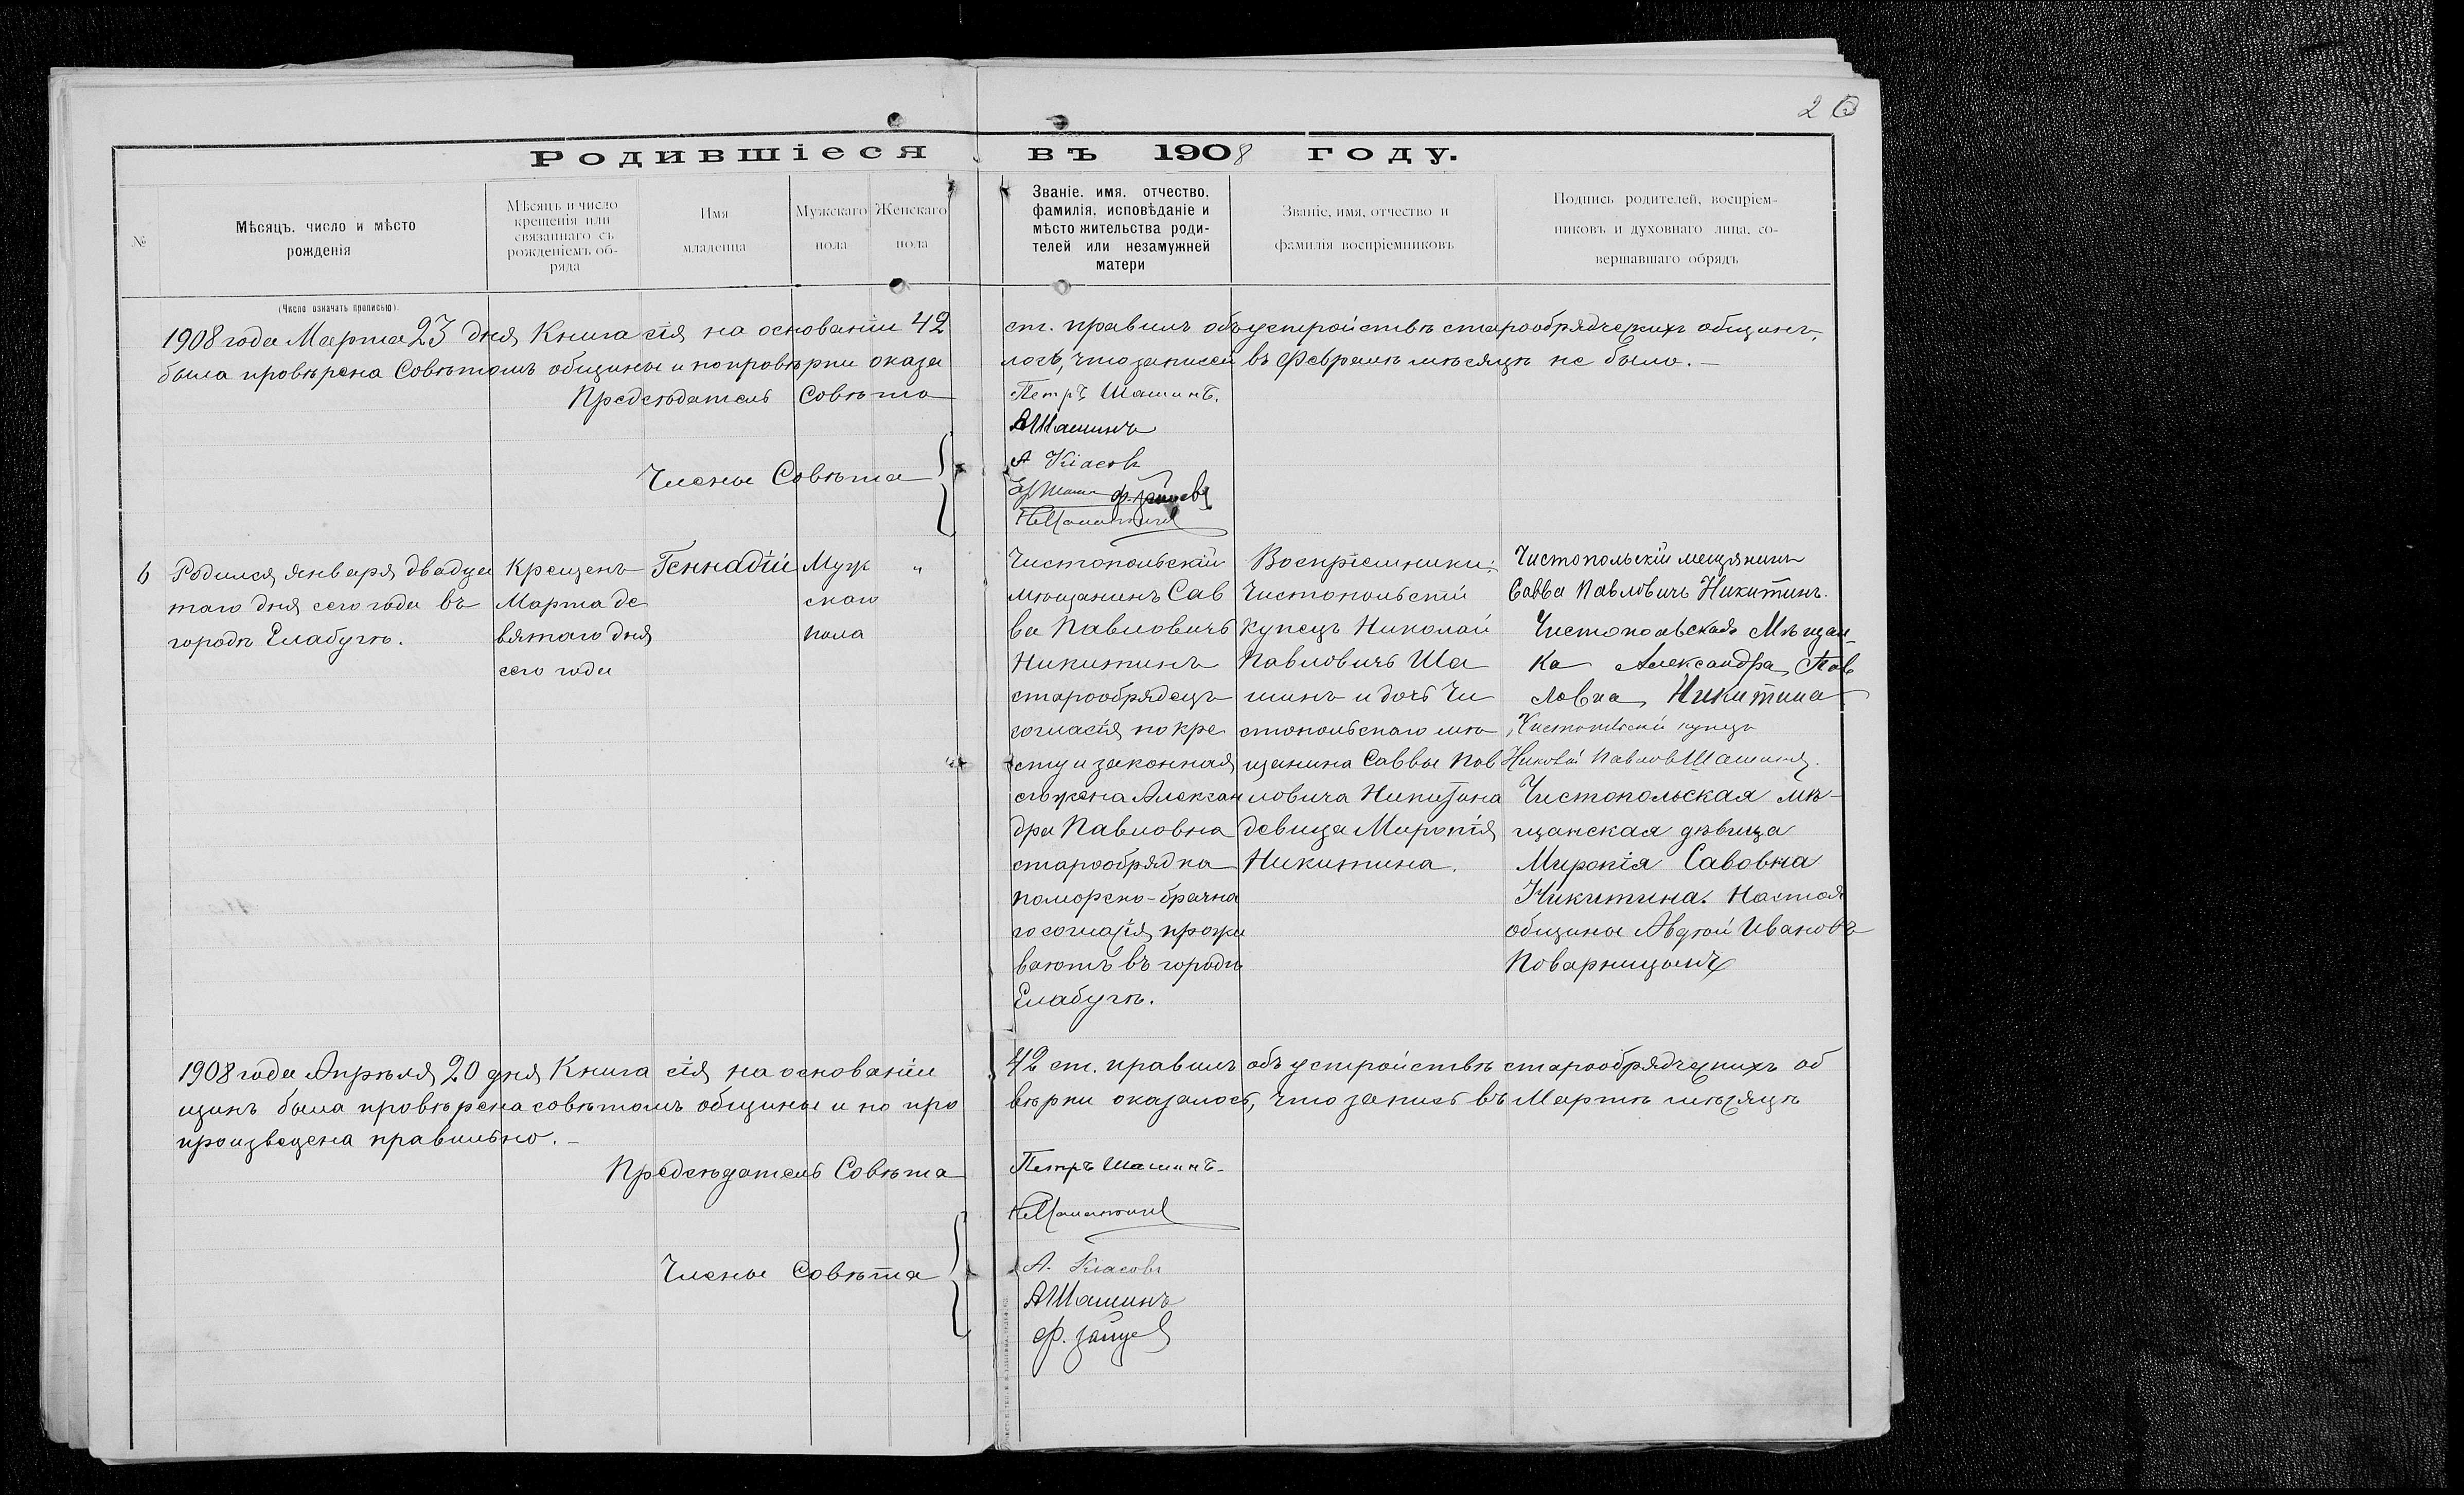 26
Родившіеся въ 1908 году.
№
Мѣсяцъ, число и мѣсто
рожденія
Мѣсяцъ и число
крещенія или
связаннаго съ
рожденіемъ об-
ряда
Имя
младенца
Мужскаго
пола
Женскаго
пола
Званіе, имя, отчество,
фамилія, исповѣданіе и
мѣсто жительства роди-
телей или незамужней
матери
Званіе, имя, отчество и
фамилія воспріемниковъ
Подпись родителей, воспріем-
никовъ и духовнаго лица, со-
вершавшаго обрядъ
(Число означать прописью).
1908 года Марта 23 дня Книга сія на основаніи 42 ст. правилъ объ устройствѣ старообрядческихъ общинъ,
была провѣрена Совѣтомъ общины и по провѣрки оказа лось, что записей въ Февралѣ мѣсяцѣ не было. —
Предсѣдатель Совѣта Петръ Шашинъ.
АШашинъ
Члены Совѣта
А Класовъ
Ф. Зайцевъ
6
Родился января двадца
таго дня сего года въ
городѣ Елабугѣ.
Крещенъ
Марта де
вятаго дня
сего года
Геннадій
Муж
скаго
пола
"
Чистопольскій
мѣщанинъ Сав
ва Павловичъ
Никитинъ
старообрядецъ
согласія по кре
сту и законная
его жена Алексан
дра Павловна
старообрядка
поморско-брачна
го согласія прожи
ваютъ въ городѣ
Елабугѣ.
Воспріемники:
Чистопольскій
купецъ Николай
Павловичъ Ша
шинъ и дочь Чи
стопольскаго мѣ
щанина Саввы Пав
ловича Никитина
девица Миропія
Никитина.
Чистопольскій мещянинъ
Савва Павловичъ Никитинъ.
Чистопольская Мѣщан-
ка Александра Пав
ловна Никитина
Чистопольскій купецъ
Николай Павлов Шашинъ.
Чистопольская мѣ-
щанская дѣвица
Миропія Савовна
Никитина. Настоя
общины Авдѣй Ивановъ
Поварницынъ
1908 года Апрѣля 20 дня Книга сія на основаніи 42 ст. правилъ объ устройствѣ старообрядческихъ об
щинъ была провѣрена совѣтомъ общины и по про вѣрки оказалось, что запись въ Мартѣ мѣсяцѣ
произведена правильно. —
Предсѣдатель Совѣта Петръ Шашинъ.
Члены Совѣта
А. Класовъ
АШашинъ
Ф. Зайцев